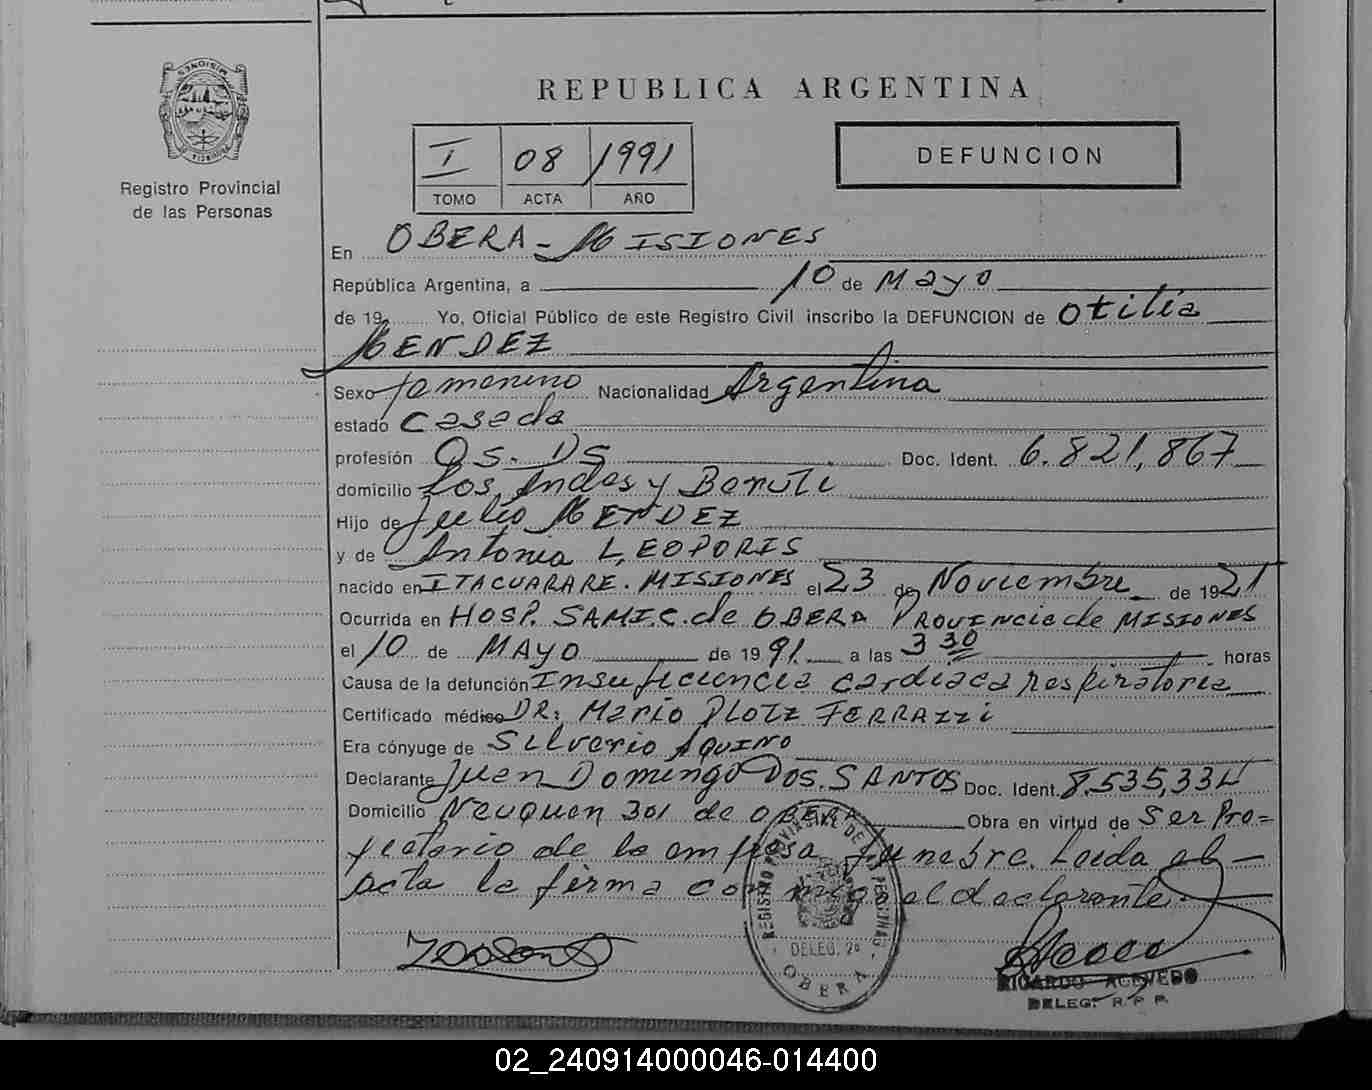 MISIONES
PROVINCIA
Registro Provincial
de las Personas
REPUBLICA ARGENTINA
I 08 1991
TOMO ACTA AÑO
DEFUNCION
En OBERA - MISIONES
República Argentina, a 10 de Mayo
de 19 Yo, Oficial Público de este Registro Civil inscribo la DEFUNCION de Otilia
MENDEZ
Sexo femenino Nacionalidad Argentina
estado Casada
profesión QS. DS Doc. Ident. 6.821,867
domicilio Los Andes y Beruti
Hijo de Julio MENDEZ
y de Antonia LEOPORIS
nacido en ITACUARARE. MISIONES el 23 de Noviembre de 1921
Ocurrida en HOSP. SAMIC. de OBERA PROVINCIA de MISIONES
el 10 de MAYO de 1991. a las 3 30 horas
Causa de la defunción Insuficiencia cardiaca respiratoria
Certificado médico DR: Mario PLOTZ FERRAZZI
Era cónyuge de Silverio AQUINO
Declarante Juan Domingo DOS. SANTOS Doc. Ident. 8.535,334
Domicilio Neuquen 301 de OBERA Obra en virtud de Ser Pro=
pietario de la empresa funebre. Leida el
acta la firma conmigo el declarante.
REGISTRO PROVINCIAL DE LAS PERSONAS
DELEG. 2ª
OBERA
RICARDO ACEVEDO
DELEG. R. P. P.
02_240914000046-014400